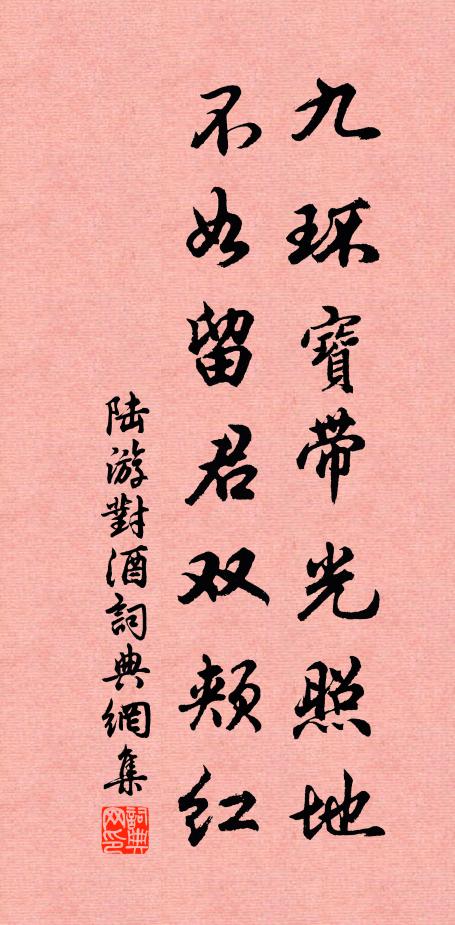 九环宝带光照地
不如留君双颊红
陆游對酒詞典網集
詞典网印